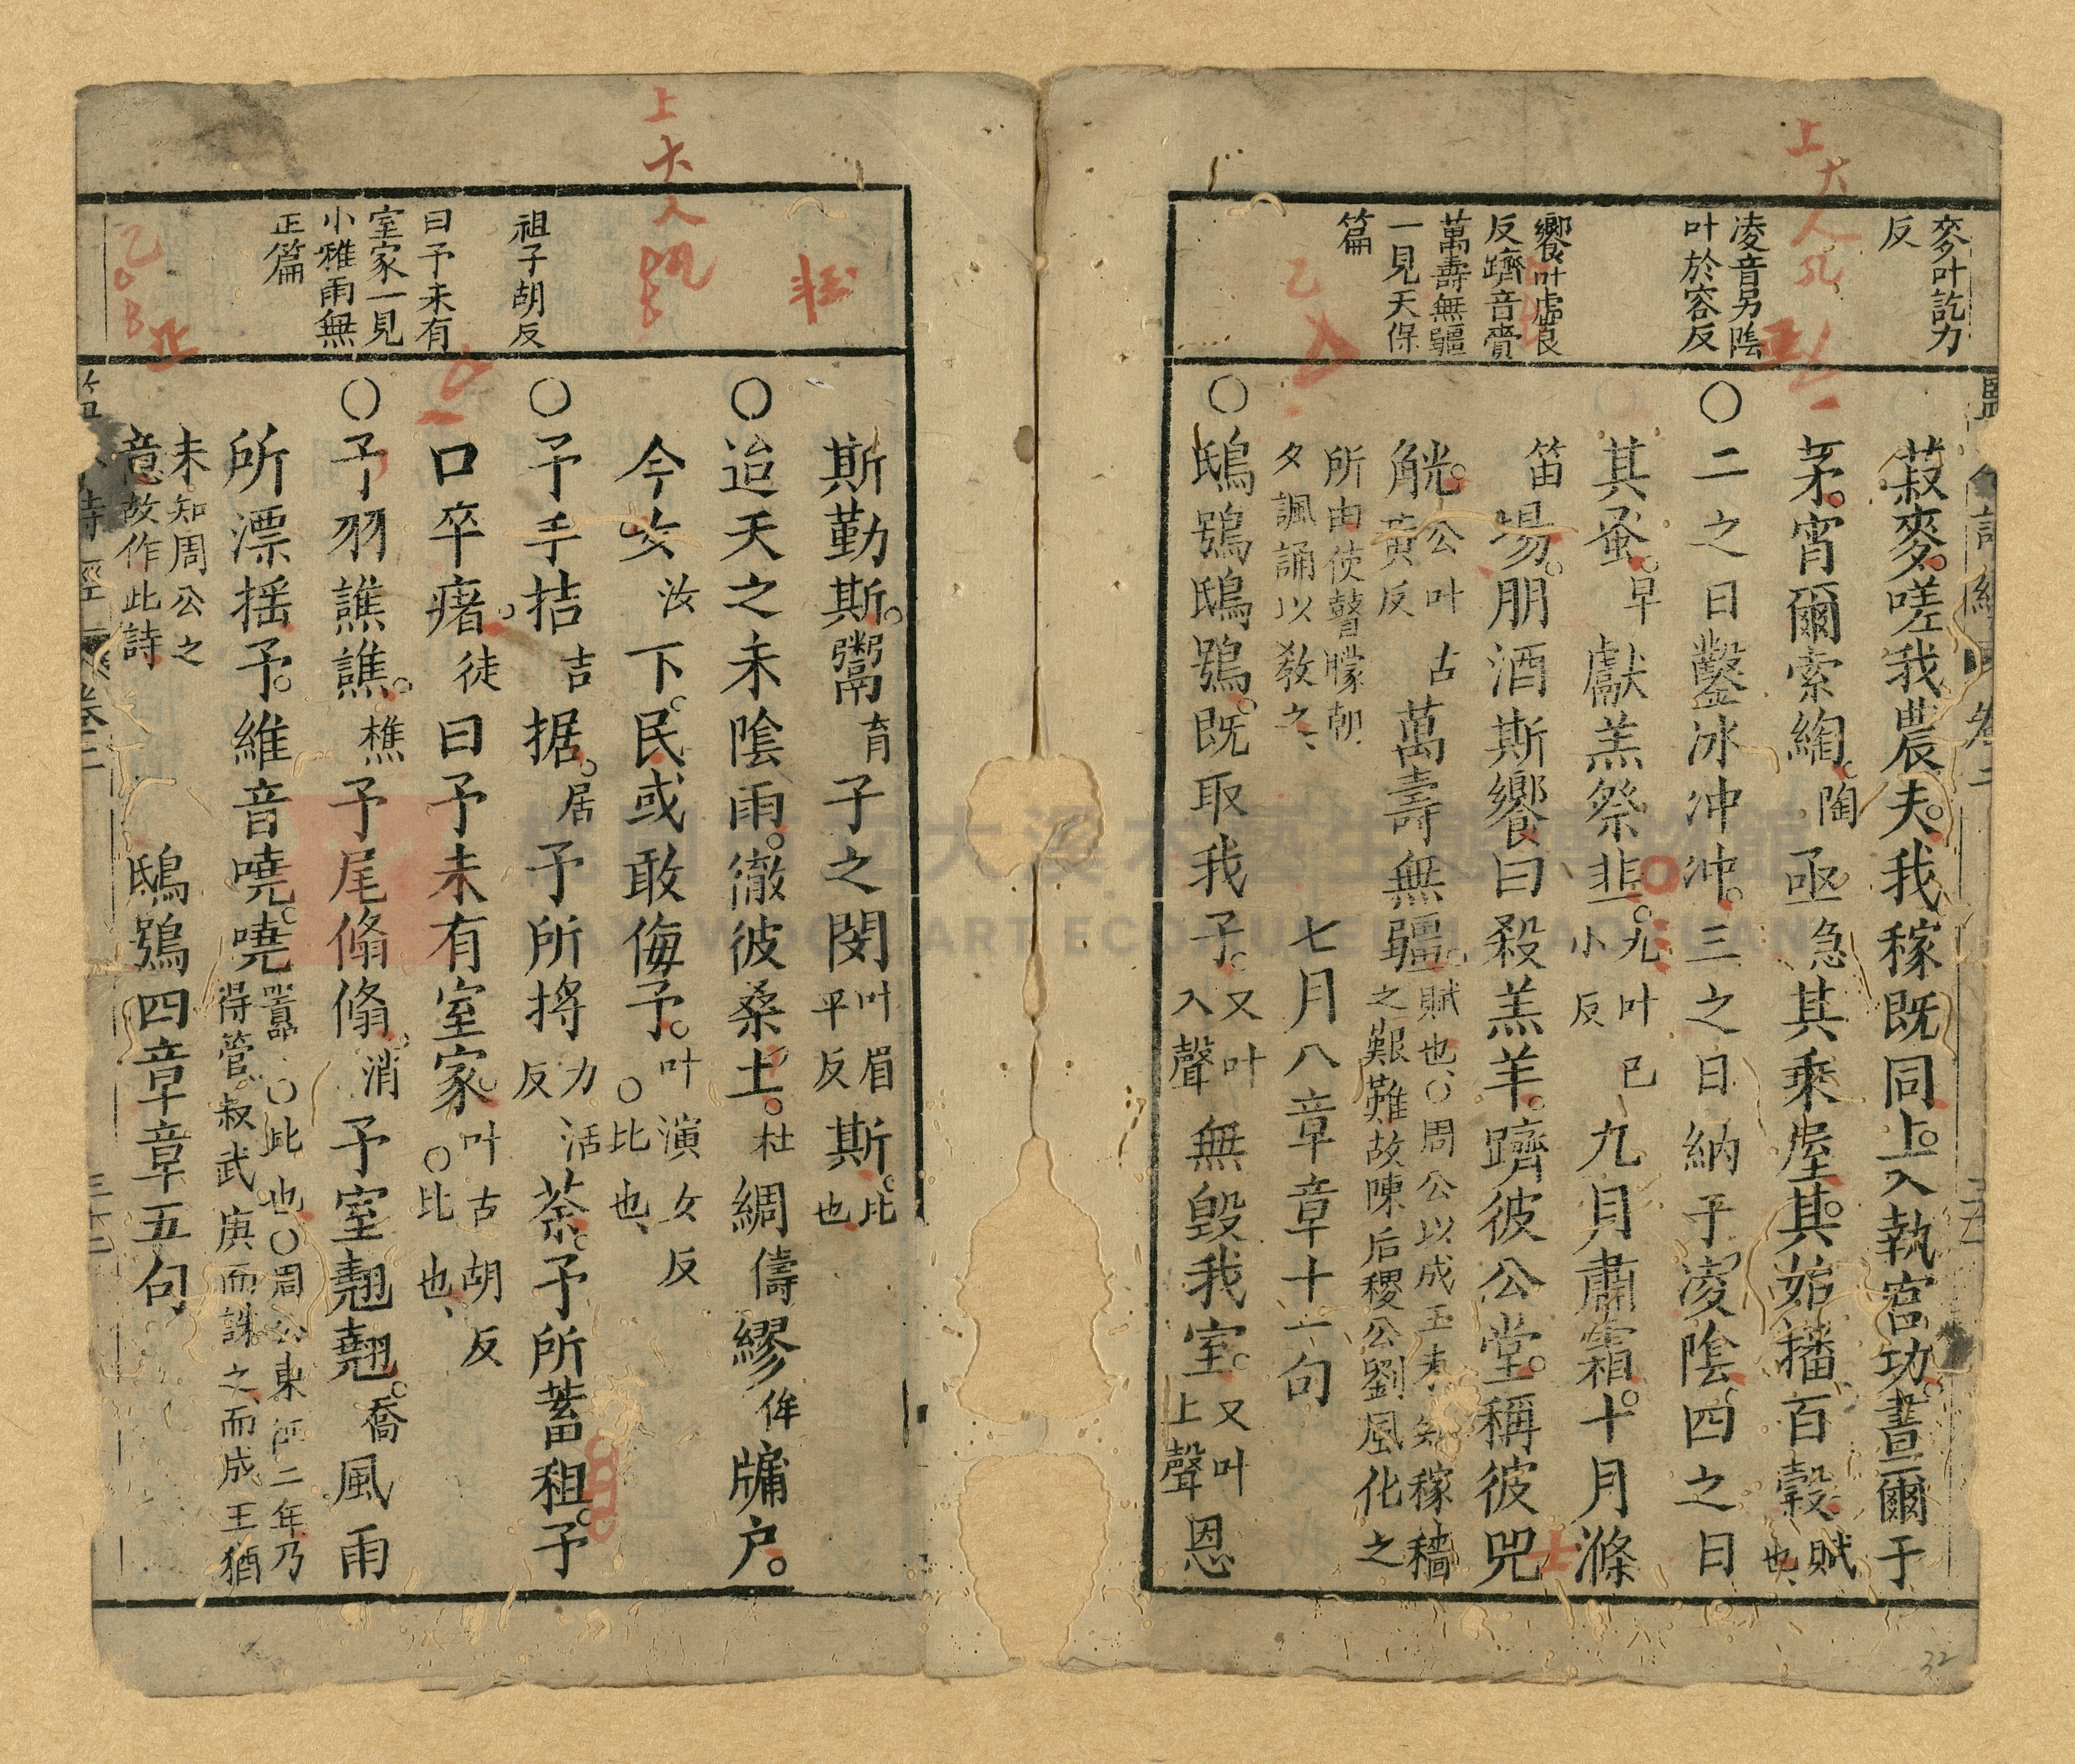 麥叶訖力
反
凌音另隂
叶於容反
饗叶虛良
反躋音賫
萬壽無疆
一見天保
篇
菽麥嗟我農夫我稼既同上入執宮功晝爾于
茅宵爾索綯陶亟急其乘屋其始播百穀賦也
〇二之日鑿冰冲冲三之日納于凌隂四之日
其蚤早獻羔祭韭九叶已小反九月肅霜十月滌
笛場朋酒斯饗曰殺羔羊躋彼公堂稱彼兕
觥公叶古黃反萬壽無疆賦也〇周公以成王未知稼穡之艱難故陳后稷公劉風化之
所由使瞽矇朝夕諷誦以教之 七月八章章十一句
〇鴟鴞鴟鴞既取我子又叶入聲無毀我室又叶上聲恩
祖子胡反
曰予未有
室家一見
小雅雨無
正篇
斯勤斯鬻育子之閔叶眉平反斯比也
〇迨天之未隂雨徹彼桑土杜綢儔繆侔牖户
今女汝下民或敢侮予叶演女反〇比也
〇予手拮吉据居予所捋力活反荼予所蓄租予
口卒瘏徒曰予未有室家叶古胡反〇比也
〇予羽譙譙樵予尾翛翛消予室翹翹喬風雨
所漂摇予維音嘵嘵囂〇比也〇周公東征二年乃得管叔武庚而誅之而成王猶
未知周公之意故作此詩 鴟鴞四章章五句
詩經 卷二 三十二